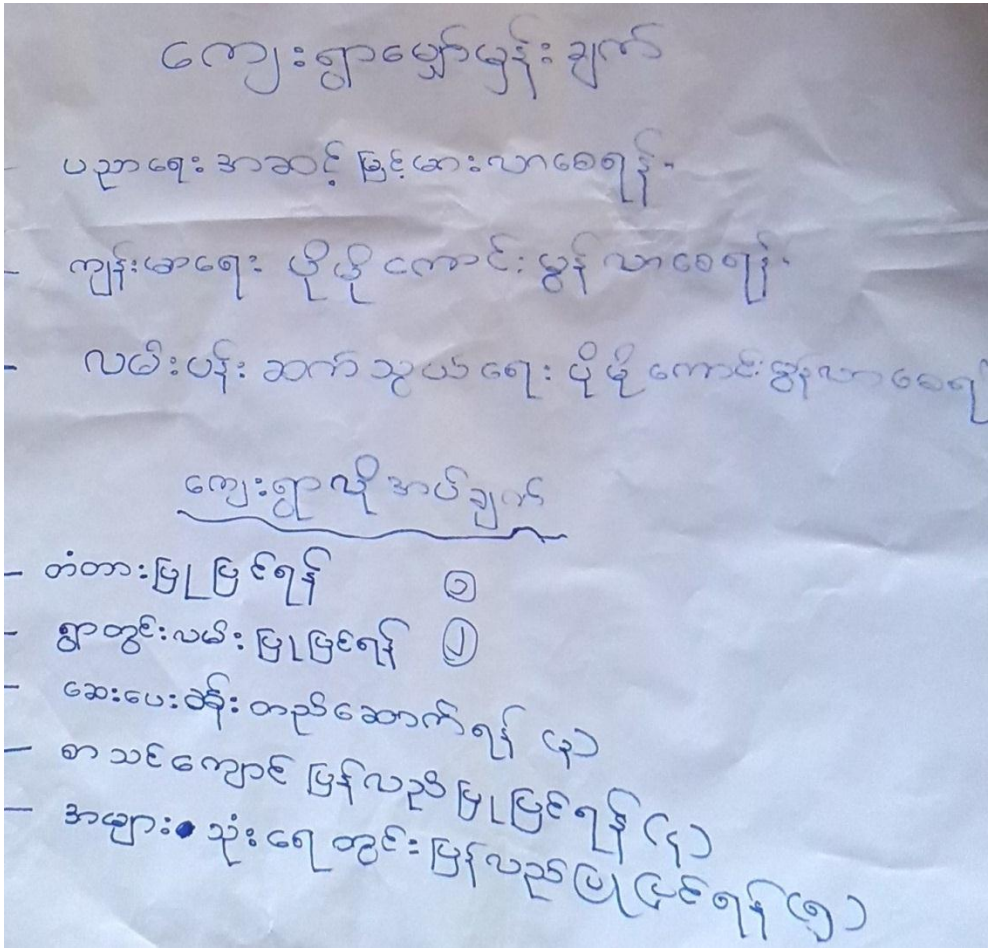 ကျေးရွာမျှော်မှန်းချက်
- ပညာရေးအဆင့်မြင့်မားလာစေရန်-
- ကျန်းမာရေး ပိုမိုကောင်းမွန်လာစေရန်-
- လမ်းပန်းဆက်သွယ်ရေး ပိုမိုကောင်းမွန်လာစေရ
ကျေးရွာလိုအပ်ချက်
- တံတားပြုပြင်ရန် ၁
- ရွာတွင်းလမ်းပြုပြင်ရန် ၂
- ဆေးပေးခန်းတည်ဆောက်ရန် (၃)
- စာသင်ကျောင်ပြန်လည်ပြုပြင်ရန် (၄)
- အများသုံးရေတွင်းပြန်လည်ပြုပြင်ရန် (၅)